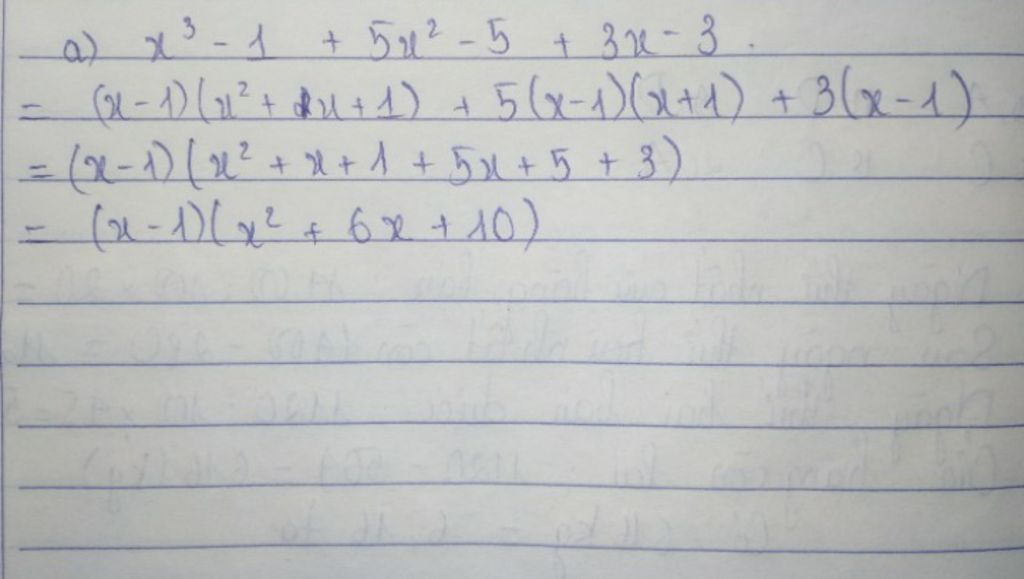 a) x³ - 1 + 5x² - 5 + 3x - 3.
= (x-1)(x² + x + 1) + 5(x-1)(x+1) + 3(x-1)
= (x-1)(x² + x + 1 + 5x + 5 + 3)
= (x-1)(x² + 6x + 10)